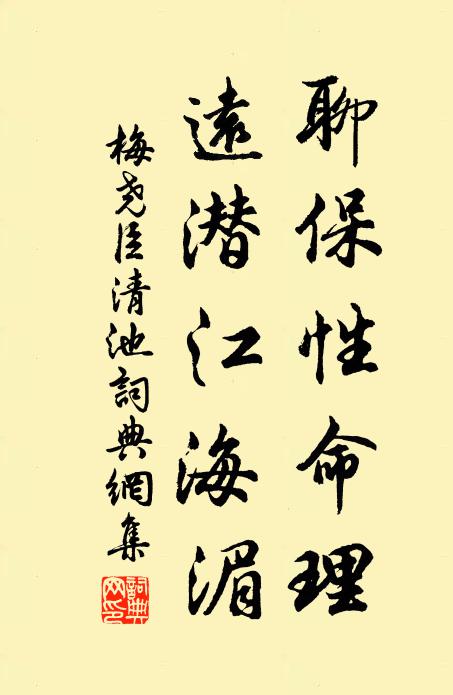 聊保性命理
遠潜江海湄
梅尧臣清池詞典網集
詞典網印